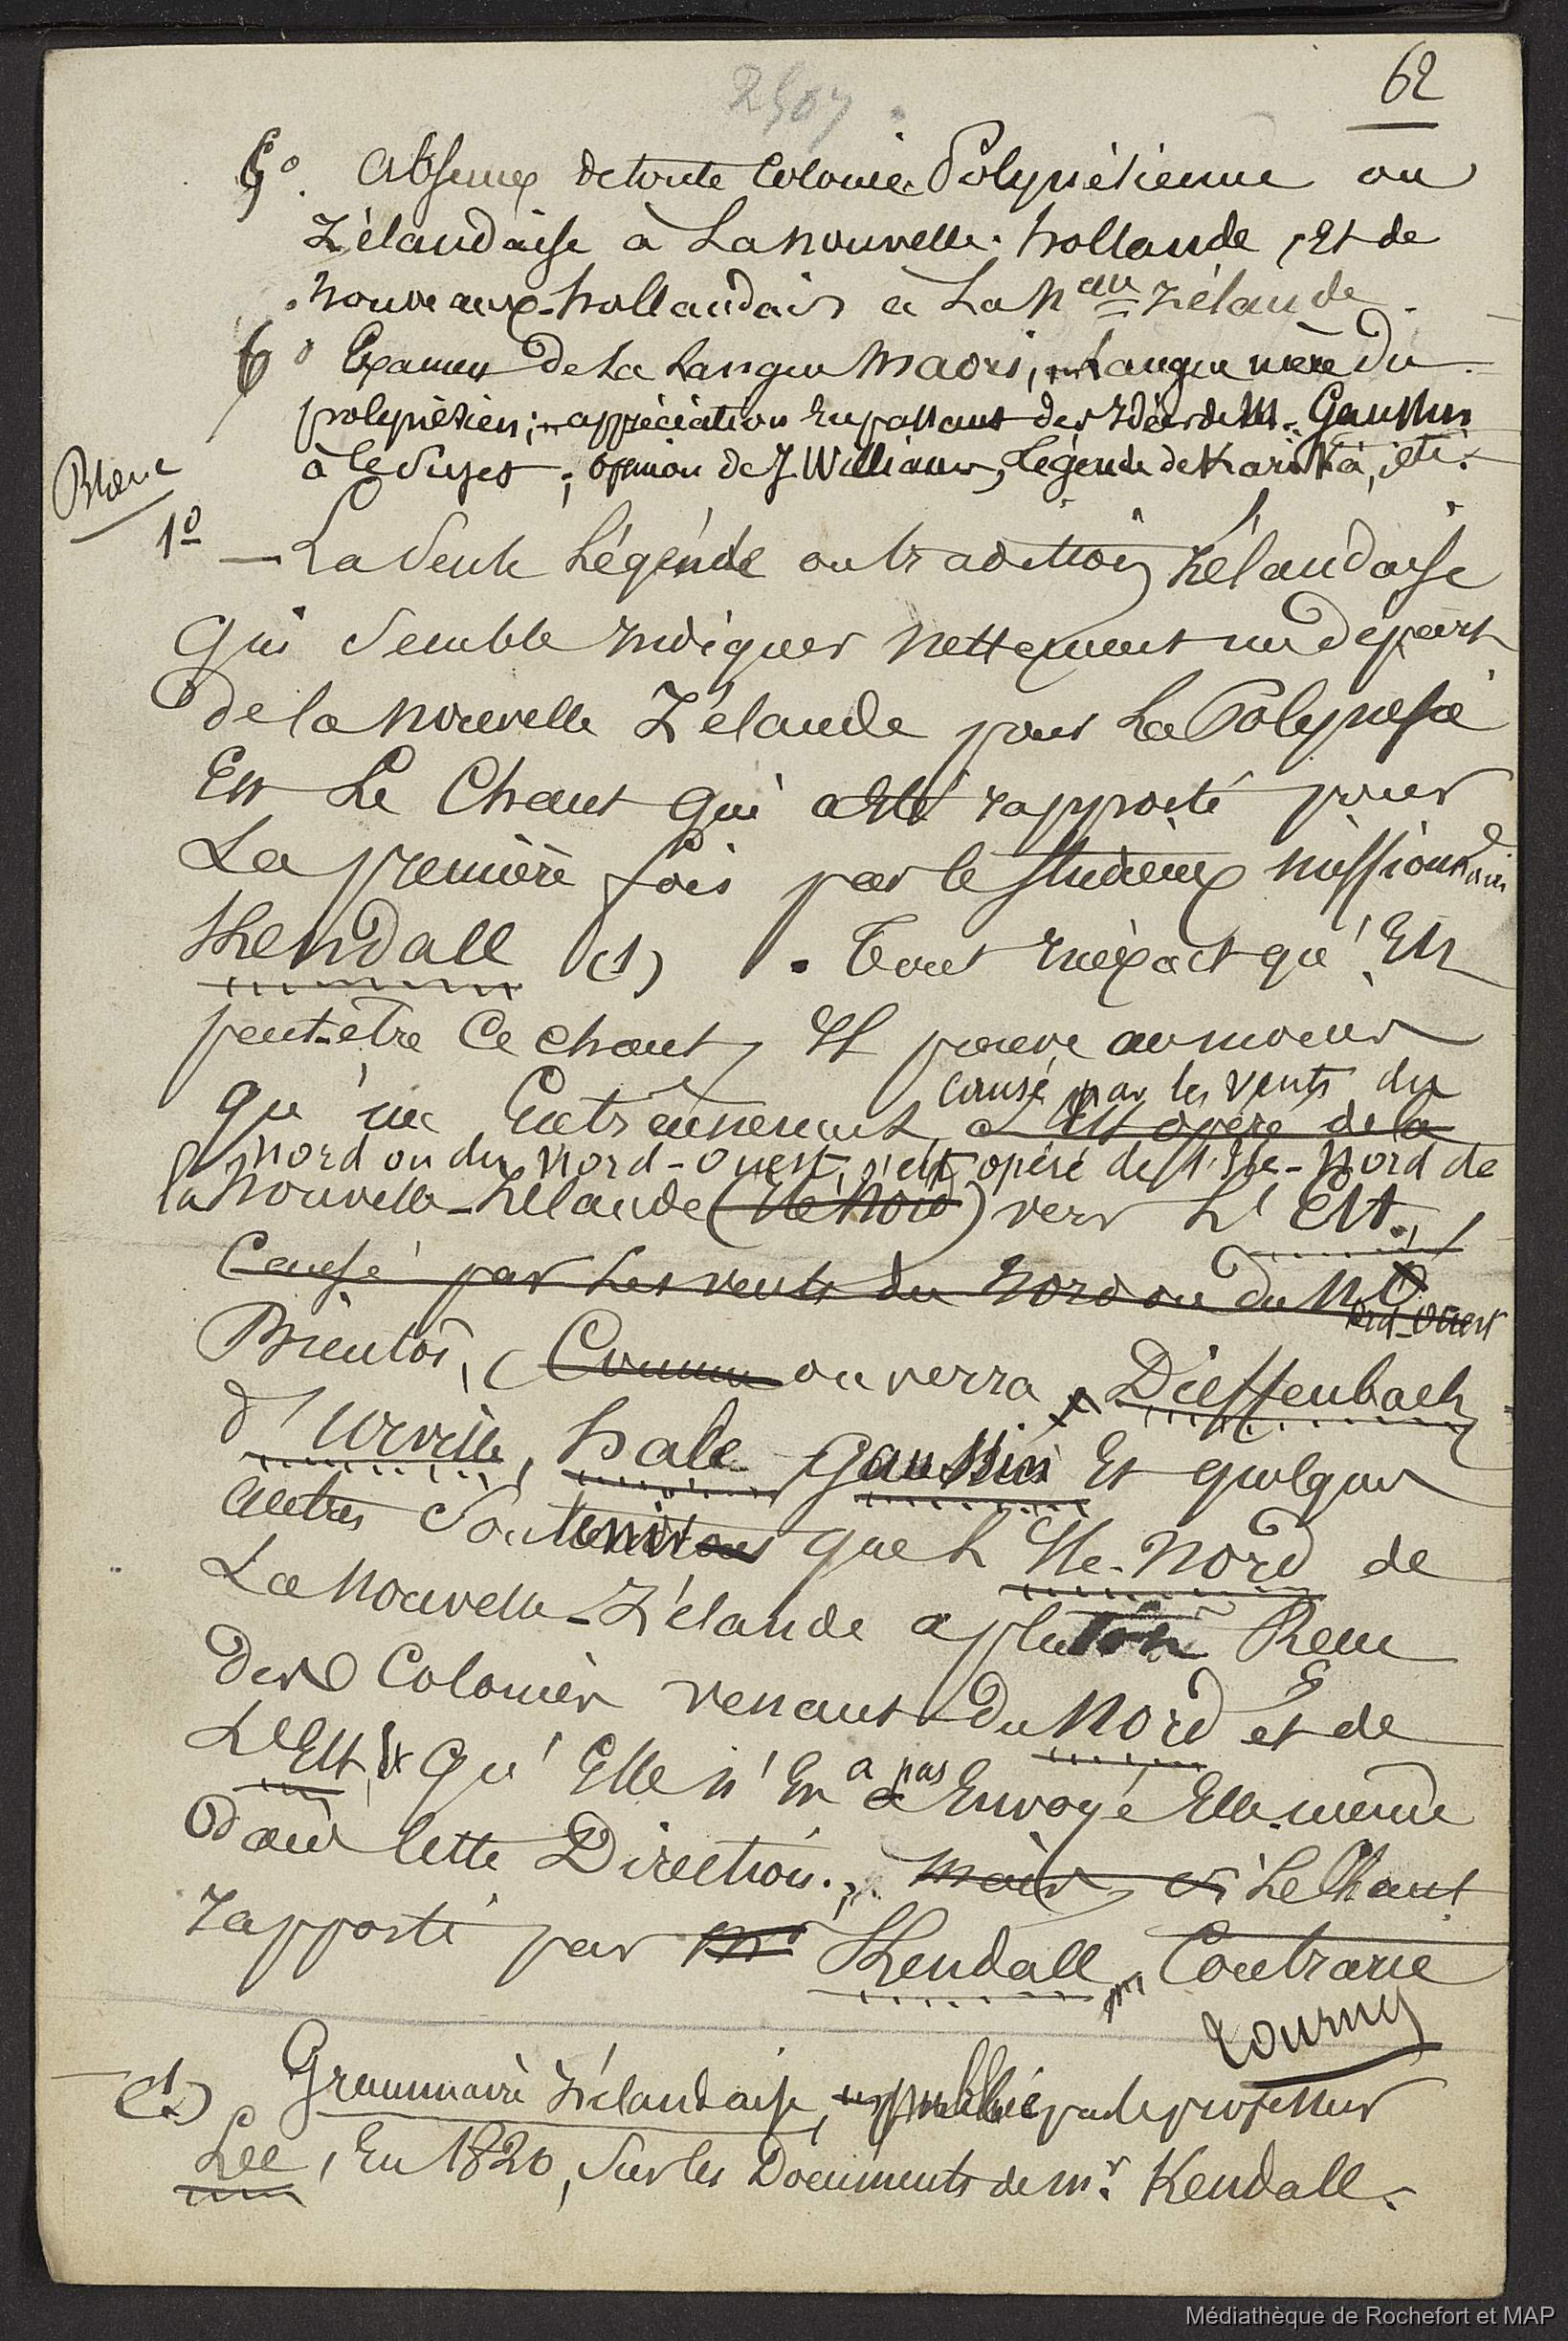 62
2507
5° Absence de toute Colonie Polynésienne ou
Zélandaise à La nouvelle-hollande, Et de
nouveaux-hollandais à La Nlle Zélande.
6° Examen De La Langue Maori, Langue mère du
polynésien; appréciation En passant des Idées de M. Gaussin
à Ce Sujet; opinion de J. Williams, Légende de Karika, etc.
Blanc
1° — La Seule Légende ou tradition Zélandaise
qui Semble Indiquer nettement un départ
de la nouvelle Zélande pour La Polynésie
Est Le Chant qui a Eté rapporté pour
La première fois par le studieux missionnaire
Kendall (1). Tout Inexact qu'Est
peut-être Ce chant, Il prouve au moins
causé par les vents du
qu'un Entraînement a Est opéré de la
nord ou du nord-ouest, s'est opéré de l'Ile-Nord de
la nouvelle-Zélande (Ile Nord) vers L'Est.
Causé par Les vents du Nord ou du N.O
ord-ouest
Bientôt, Comme on verra Dieffenbach
d'Urville, hale Gaussin Et quelques
autres Soutenir que L'Ile-Nord de
La Nouvelle-Zélande a plutôt Reçu
des Colonies venant du Nord et de
L'Est qu'Elle n'En a pas Envoyé Elle-même
dans Cette Direction. Mais, si Le Chant
rapporté par Mr Kendall Contrarie
tournez
(1) Grammaire Zélandaise, publiée par le professeur
Lee, En 1820, Sur les Documents de Mr. Kendall.
Médiathèque de Rochefort et MAP